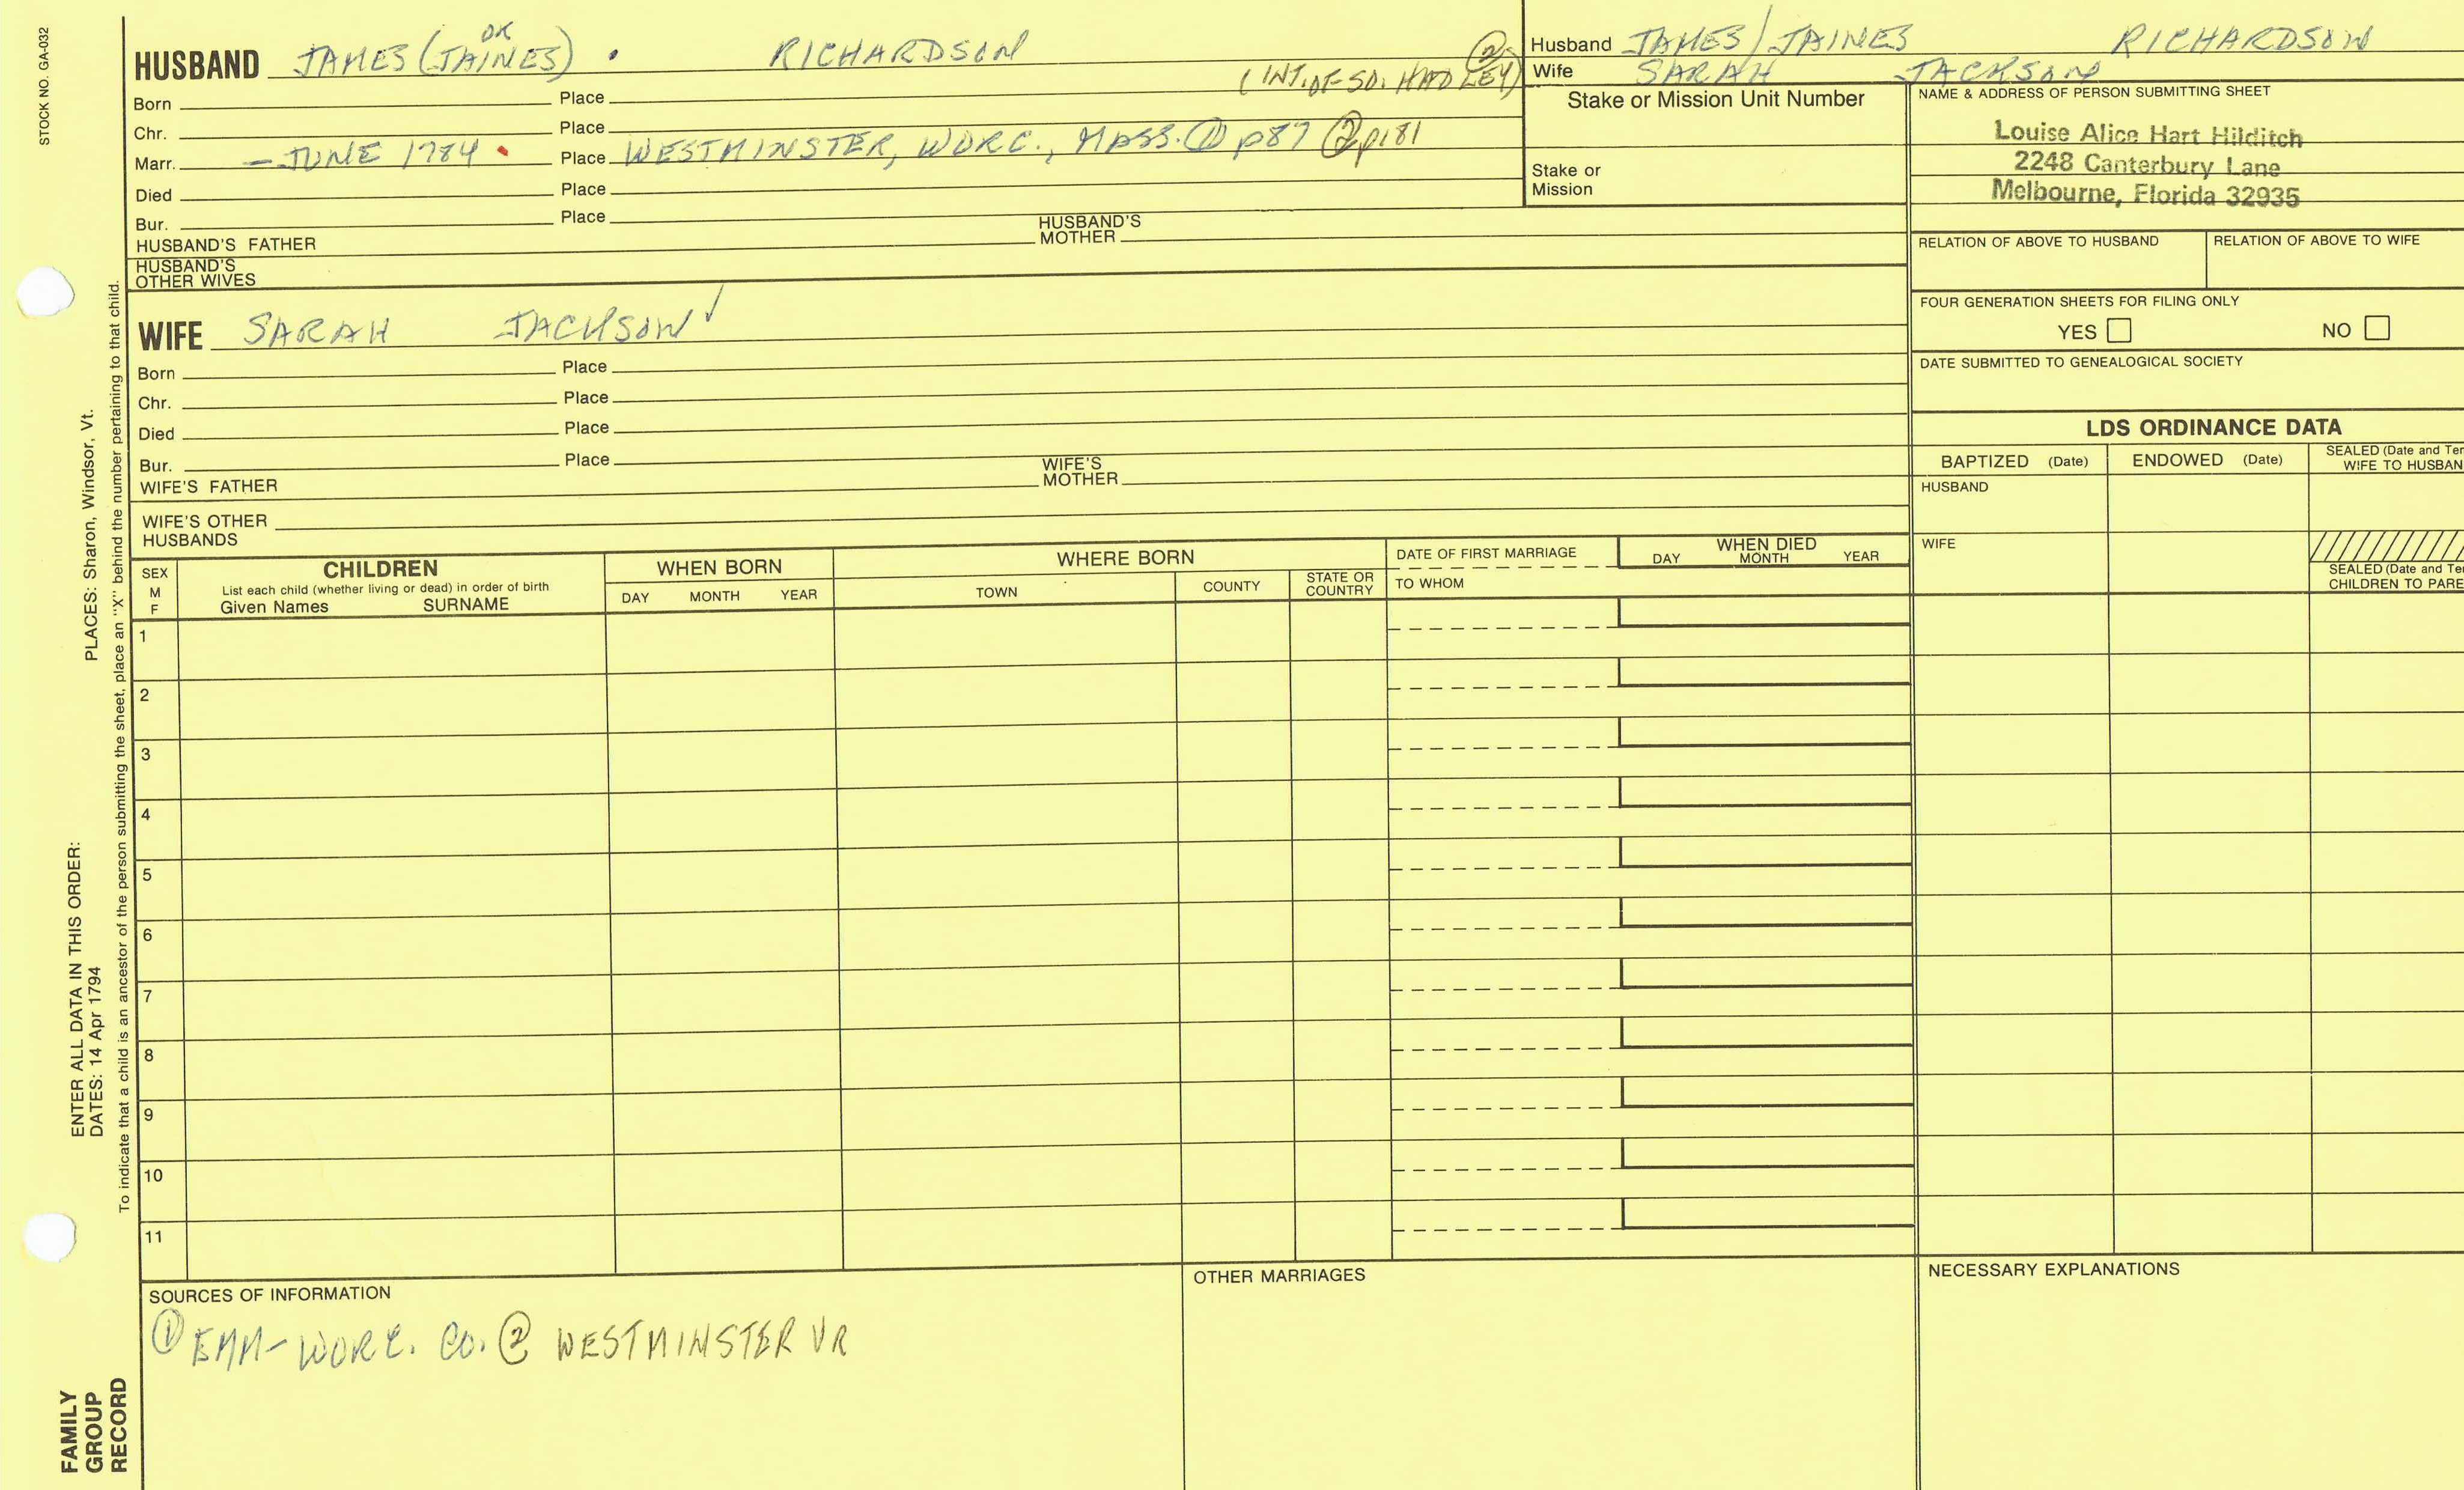 STOCK NO. GA-032
HUSBAND JAMES (JAINES) . RICHARDSON
OK
(INT. OF SO. HADLEY) ②
Born Place
Chr. Place
Marr. — JUNE 1784 . Place WESTMINSTER, WORC., MASS. ① p87 ② p181
Died Place
Bur. Place
HUSBAND'S FATHER HUSBAND'S MOTHER
HUSBAND'S OTHER WIVES
Husband JAMES/JAINES RICHARDSON
Wife SARAH JACKSON
Stake or Mission Unit Number
Stake or
Mission
NAME & ADDRESS OF PERSON SUBMITTING SHEET
Louise Alice Hart Hilditch
2248 Canterbury Lane
Melbourne, Florida 32935
RELATION OF ABOVE TO HUSBAND RELATION OF ABOVE TO WIFE
FOUR GENERATION SHEETS FOR FILING ONLY
YES NO
DATE SUBMITTED TO GENEALOGICAL SOCIETY
WIFE SARAH JACKSON ✓
Born Place
Chr. Place
Died Place
Bur. Place
WIFE'S FATHER WIFE'S MOTHER
WIFE'S OTHER
HUSBANDS
LDS ORDINANCE DATA
BAPTIZED (Date) ENDOWED (Date) SEALED (Date and Tem
WIFE TO HUSBAN
HUSBAND
WIFE
SEALED (Date and Te
CHILDREN TO PARE
SEX
M
F
CHILDREN
List each child (whether living or dead) in order of birth
Given Names SURNAME
WHEN BORN
DAY MONTH YEAR
WHERE BORN
TOWN COUNTY STATE OR COUNTRY
DATE OF FIRST MARRIAGE
TO WHOM
WHEN DIED
DAY MONTH YEAR
1
2
3
4
5
6
7
8
9
10
11
SOURCES OF INFORMATION
① EMM- WORC. CO. ② WESTMINSTER VR
OTHER MARRIAGES
NECESSARY EXPLANATIONS
ENTER ALL DATA IN THIS ORDER:
DATES: 14 Apr 1794 PLACES: Sharon, Windsor, Vt.
To indicate that a child is an ancestor of the person submitting the sheet, place an "X" behind the number pertaining to that child.
FAMILY
GROUP
RECORD